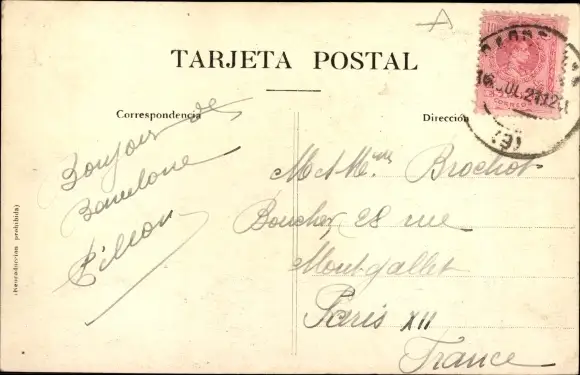 A
TARJETA POSTAL
Correspondencia
Dirección
Bonjour de
Barcelone
M et Mme Brochot
Boucher, 28 rue
Montgallet
Paris XII
France
(Reproducción prohibida)
CORREOS
16 JUL 21 12
(3)